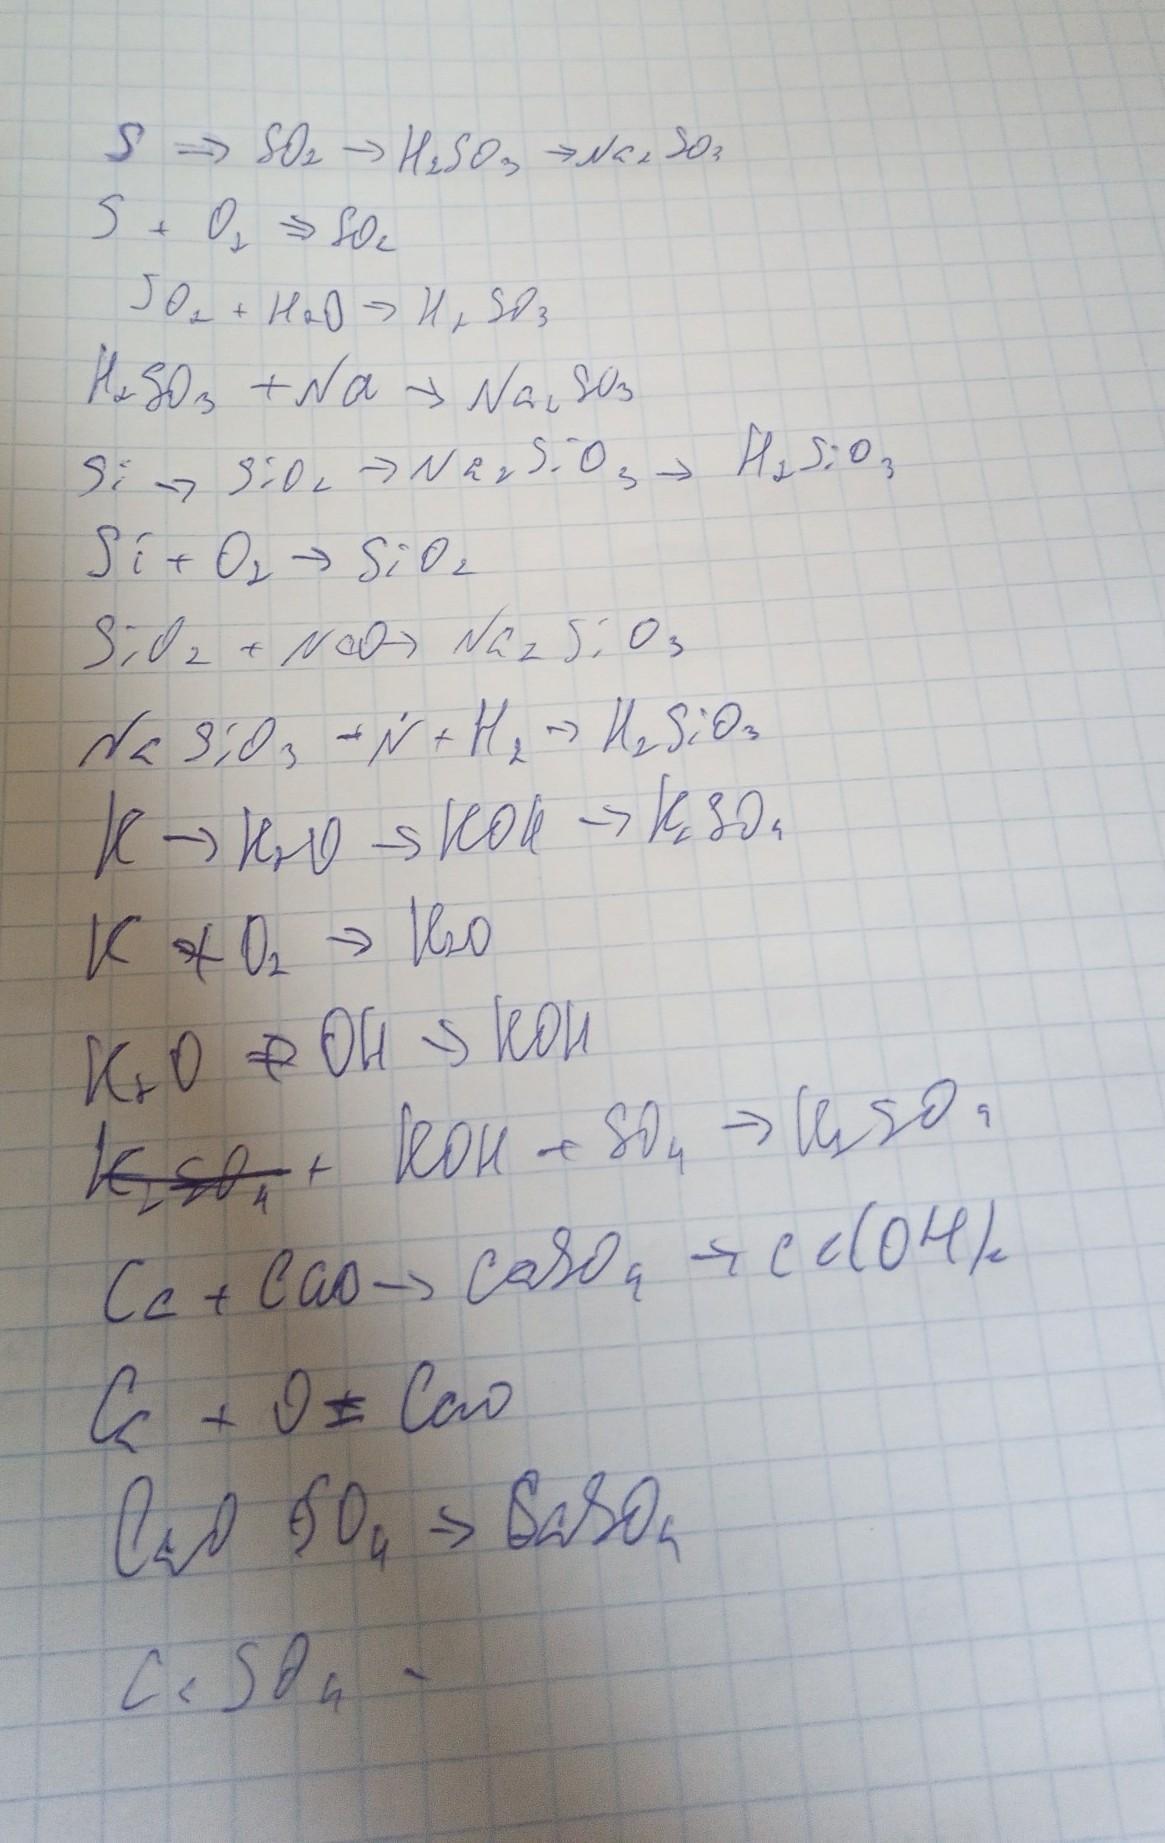 S ⇒ SO₂ → H₂SO₃ → Na₂SO₃
S + O₂ ⇒ SO₂
SO₂ + H₂O → H₂SO₃
H₂SO₃ + Na → Na₂SO₃
Si → SiO₂ → Na₂SiO₃ → H₂SiO₃
Si + O₂ → SiO₂
SiO₂ + NaO → Na₂SiO₃
NaSiO₃ + N + H₂ → H₂SiO₃
K → K₂O → KOH → K₂SO₄
K + O₂ → K₂O
K₂O + OH → KOH
+ KOH + SO₄ → K₂SO₄
Ca + CaO → CaSO₄ → Ca(OH)₂
Ca + O = CaO
CaO SO₄ → CaSO₄
CaSO₄ -